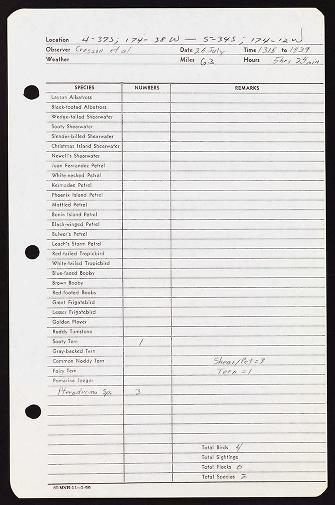 Location 4-37S; 174-38W — 5-34S; 174-12W
Observer Crossin et al Date 26 July Time 1315 to 1839
Weather Miles 63 Hours 5hrs 24min
SPECIES NUMBERS REMARKS
Laysan Albatross
Black-footed Albatross
Wedge-tailed Shearwater
Sooty Shearwater
Slender-billed Shearwater
Christmas Island Shearwater
Newell's Shearwater
Juan Fernandez Petrel
White-necked Petrel
Kermadec Petrel
Phoenix Island Petrel
Mottled Petrel
Bonin Island Petrel
Black-winged Petrel
Bulwer's Petrel
Leach's Storm Petrel
Red-tailed Tropicbird
White-tailed Tropicbird
Blue-faced Booby
Brown Booby
Red-footed Booby
Great Frigatebird
Lesser Frigatebird
Golden Plover
Ruddy Turnstone
Sooty Tern 1
Gray-backed Tern
Common Noddy Tern Shear/Pet=3
Fairy Tern Tern =1
Pomarine Jaeger
Pterodroma Sp. 3
Total Birds 4
Total Sightings
Total Flocks 0
Total Species 2